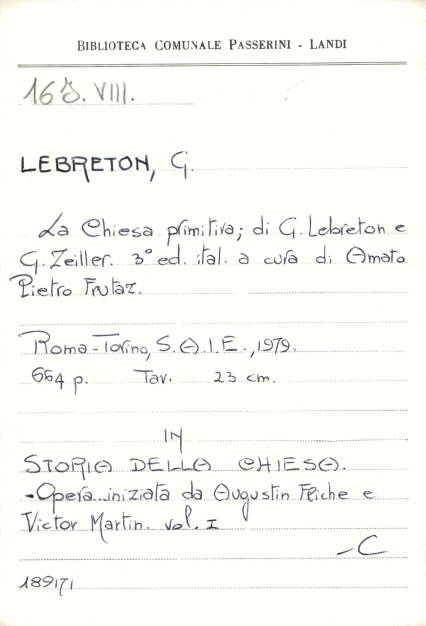 BIBLIOTECA COMUNALE PASSERINI - LANDI
16 J. VIII.
LEBRETON, G.
La Chiesa primitiva; di G. Lebreton e
G. Zeiller. 3° ed. ital. a cura di Amato
Pietro Frutaz.
Roma-Torino, S.A.I.E., 1979.
664 p. Tav. 23 cm.
IN
STORIA DELLA CHIESA.
-Opera...iniziata da Augustin Fliche e
Victor Martin. vol. I
-C
189171